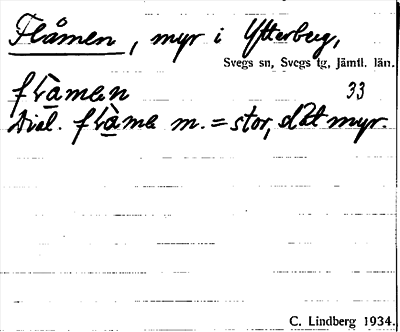 Flåmen, myr i Ytterberg,
Svegs sn, Svegs tg, Jämtl. län.
flåmen 33
Dial. flåme m. = stor, slät myr.
C. Lindberg 1934.